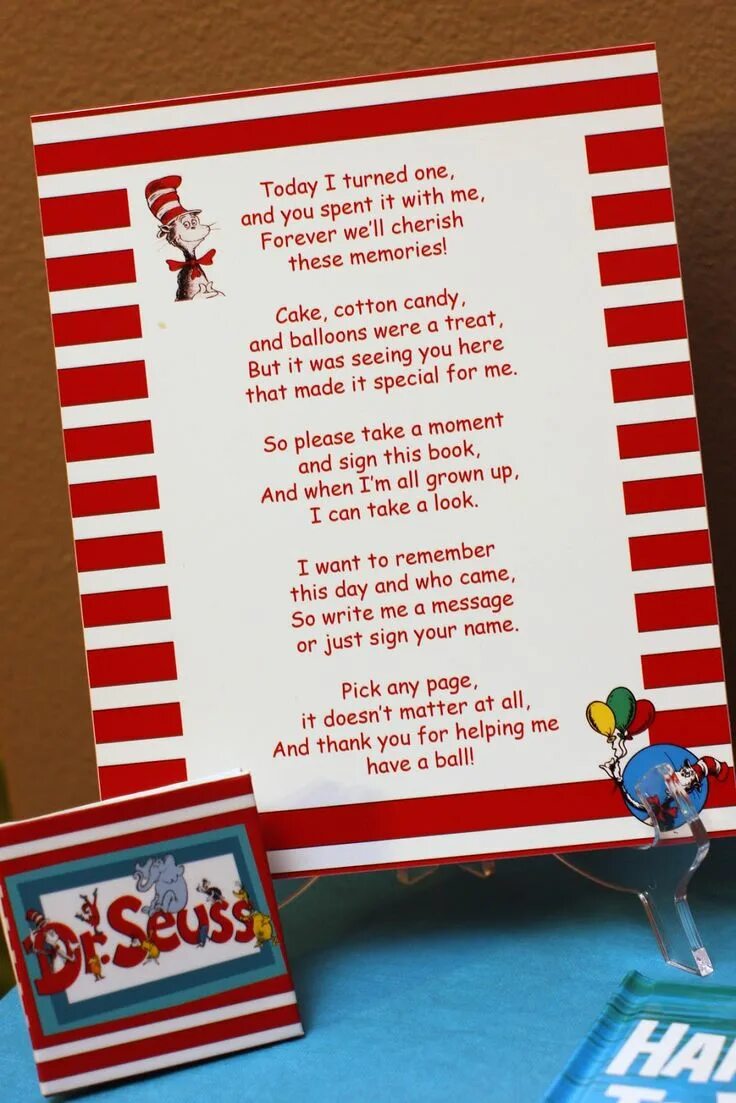 Today I turned one,
and you spent it with me,
Forever we'll cherish
these memories!
Cake, cotton candy,
and balloons were a treat,
But it was seeing you here
that made it special for me.
So please take a moment
and sign this book,
And when I'm all grown up,
I can take a look.
I want to remember
this day and who came,
So write me a message
or just sign your name.
Pick any page,
it doesn't matter at all,
And thank you for helping me
have a ball!
Dr. Seuss